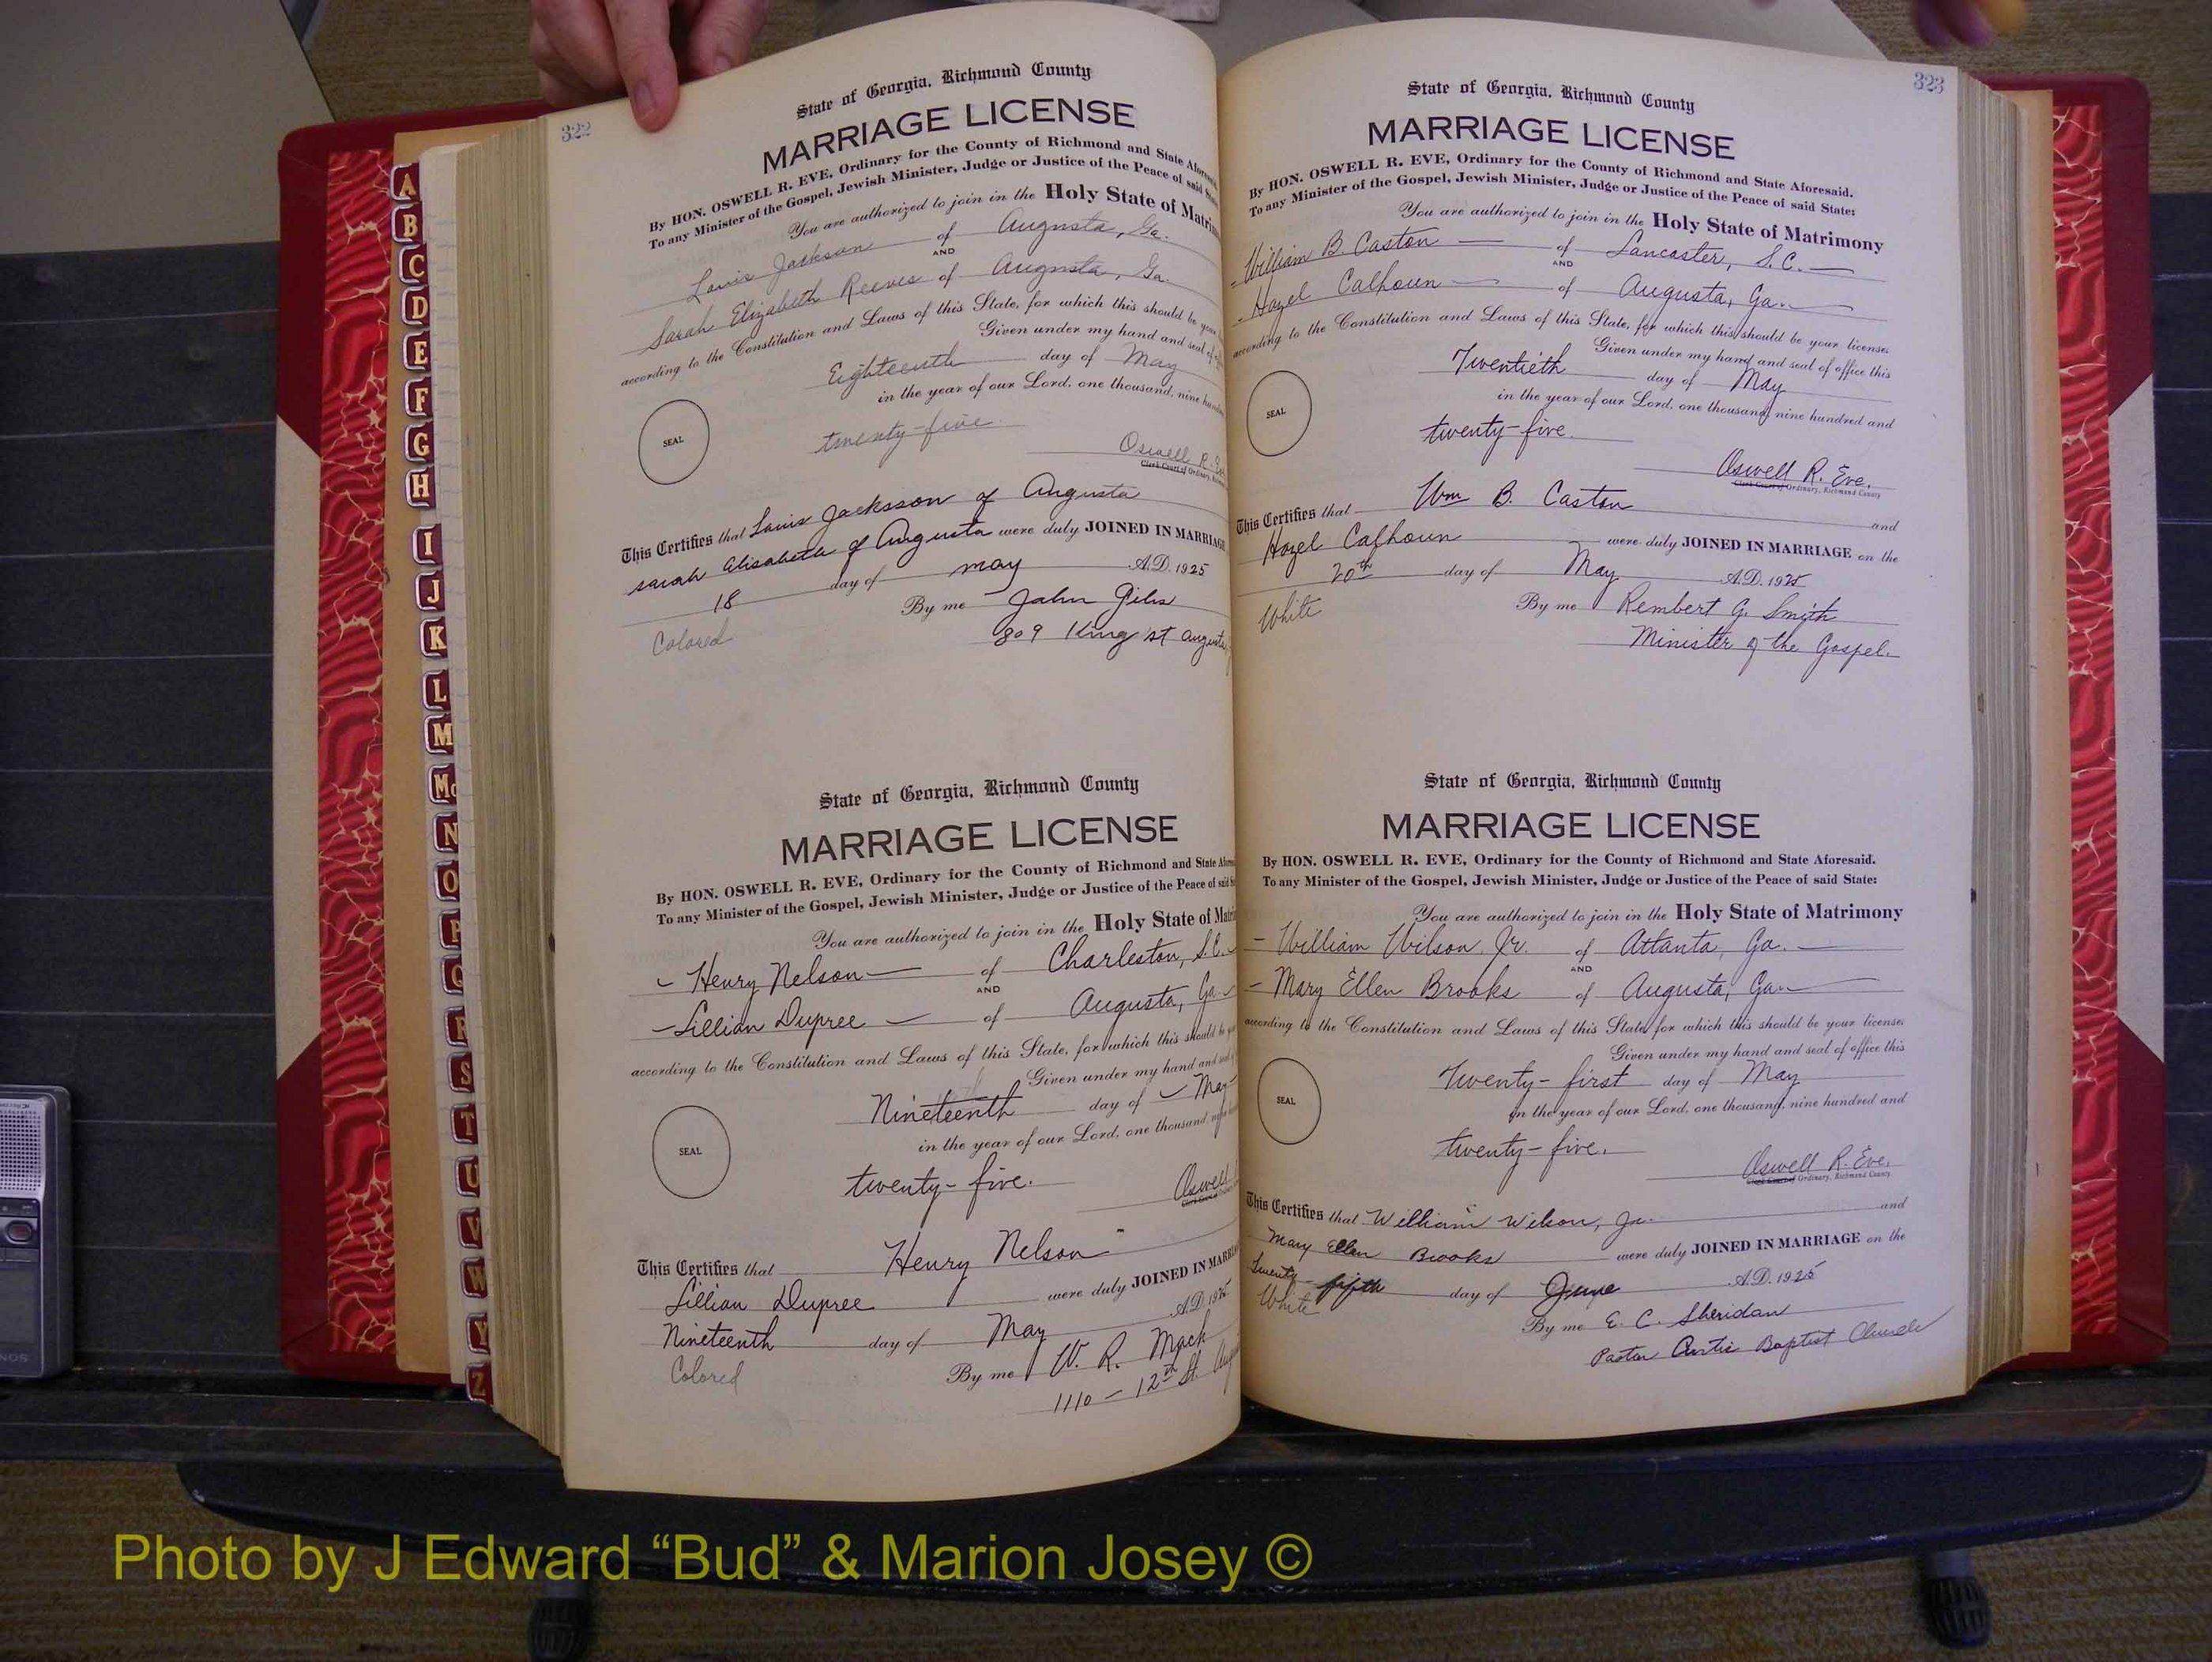 322
State of Georgia, Richmond County
MARRIAGE LICENSE
By HON. OSWELL R. EVE, Ordinary for the County of Richmond and State Aforesaid.
To any Minister of the Gospel, Jewish Minister, Judge or Justice of the Peace of said
You are authorized to join in the Holy State of Matrim
Louis Jackson of Augusta, Ga.
AND
Sarah Elizabeth Reeves of Augusta, Ga.
according to the Constitution and Laws of this State, for which this should be your
Given under my hand and seal of
Eighteenth day of May
in the year of our Lord, one thousand, nine hundred
twenty-five.
SEAL
Oswell R. Eve
Clerk Court of Ordinary,
This Certifies that Louis Jacksson of Augusta
sarah Elisabeth of Augusta were duly JOINED IN MARRIAGE
18 day of may A.D. 1925
Colored By me John
809 King st augusta
State of Georgia, Richmond County
MARRIAGE LICENSE
By HON. OSWELL R. EVE, Ordinary for the County of Richmond and State
To any Minister of the Gospel, Jewish Minister, Judge or Justice of the Peace of said
You are authorized to join in the Holy State of Matri
- Henry Nelson — of Charleston, S.C. -
AND
- Lillian Dupree — of Augusta, Ga -
according to the Constitution and Laws of this State, for which this should be
Given under my hand and seal
Nineteenth day of May
in the year of our Lord, one thousand,
SEAL
twenty-five.
Oswell
This Certifies that Henry Nelson
Lillian Dupree were duly JOINED IN MARRI
Nineteenth day of May A.D. 1925
Colored By me W. R. Mack
1110 - 12th St.
323
State of Georgia, Richmond County
MARRIAGE LICENSE
By HON. OSWELL R. EVE, Ordinary for the County of Richmond and State Aforesaid.
To any Minister of the Gospel, Jewish Minister, Judge or Justice of the Peace of said State:
You are authorized to join in the Holy State of Matrimony
- William B. Caston — of Lancaster, S.C. —
AND
- Hazel Calhoun — of Augusta, Ga. —
according to the Constitution and Laws of this State, for which this should be your licenses
Given under my hand and seal of office this
Twentieth day of May
in the year of our Lord, one thousand, nine hundred and
SEAL
twenty-five.
Oswell R. Eve.
Clerk Court of Ordinary, Richmond County
This Certifies that Wm B. Caston and
Hazel Calhoun were duly JOINED IN MARRIAGE on the
20th day of May A.D. 1925
White By me Rembert G. Smith
Minister of the Gospel.
State of Georgia, Richmond County
MARRIAGE LICENSE
By HON. OSWELL R. EVE, Ordinary for the County of Richmond and State Aforesaid.
To any Minister of the Gospel, Jewish Minister, Judge or Justice of the Peace of said State:
You are authorized to join in the Holy State of Matrimony
- William Wilson, Jr. of Atlanta, Ga. —
AND
- Mary Ellen Brooks of Augusta, Ga. —
according to the Constitution and Laws of this State, for which this should be your licenses
Given under my hand and seal of office this
Twenty-first day of May
in the year of our Lord, one thousand, nine hundred and
SEAL
twenty-five.
Oswell R. Eve.
Clerk Court of Ordinary, Richmond County
This Certifies that William Wilson, Jr. and
Mary Ellen Brooks were duly JOINED IN MARRIAGE on the
Twenty-fifth day of June A.D. 1925
White By me E. C. Sheridan
Pastor Curtis Baptist Church
A
B
C
D
E
F
G
H
I
J
K
L
M
Mc
N
O
P
Q
R
S
T
U
V
W
Y
Z
Photo by J Edward “Bud” & Marion Josey ©